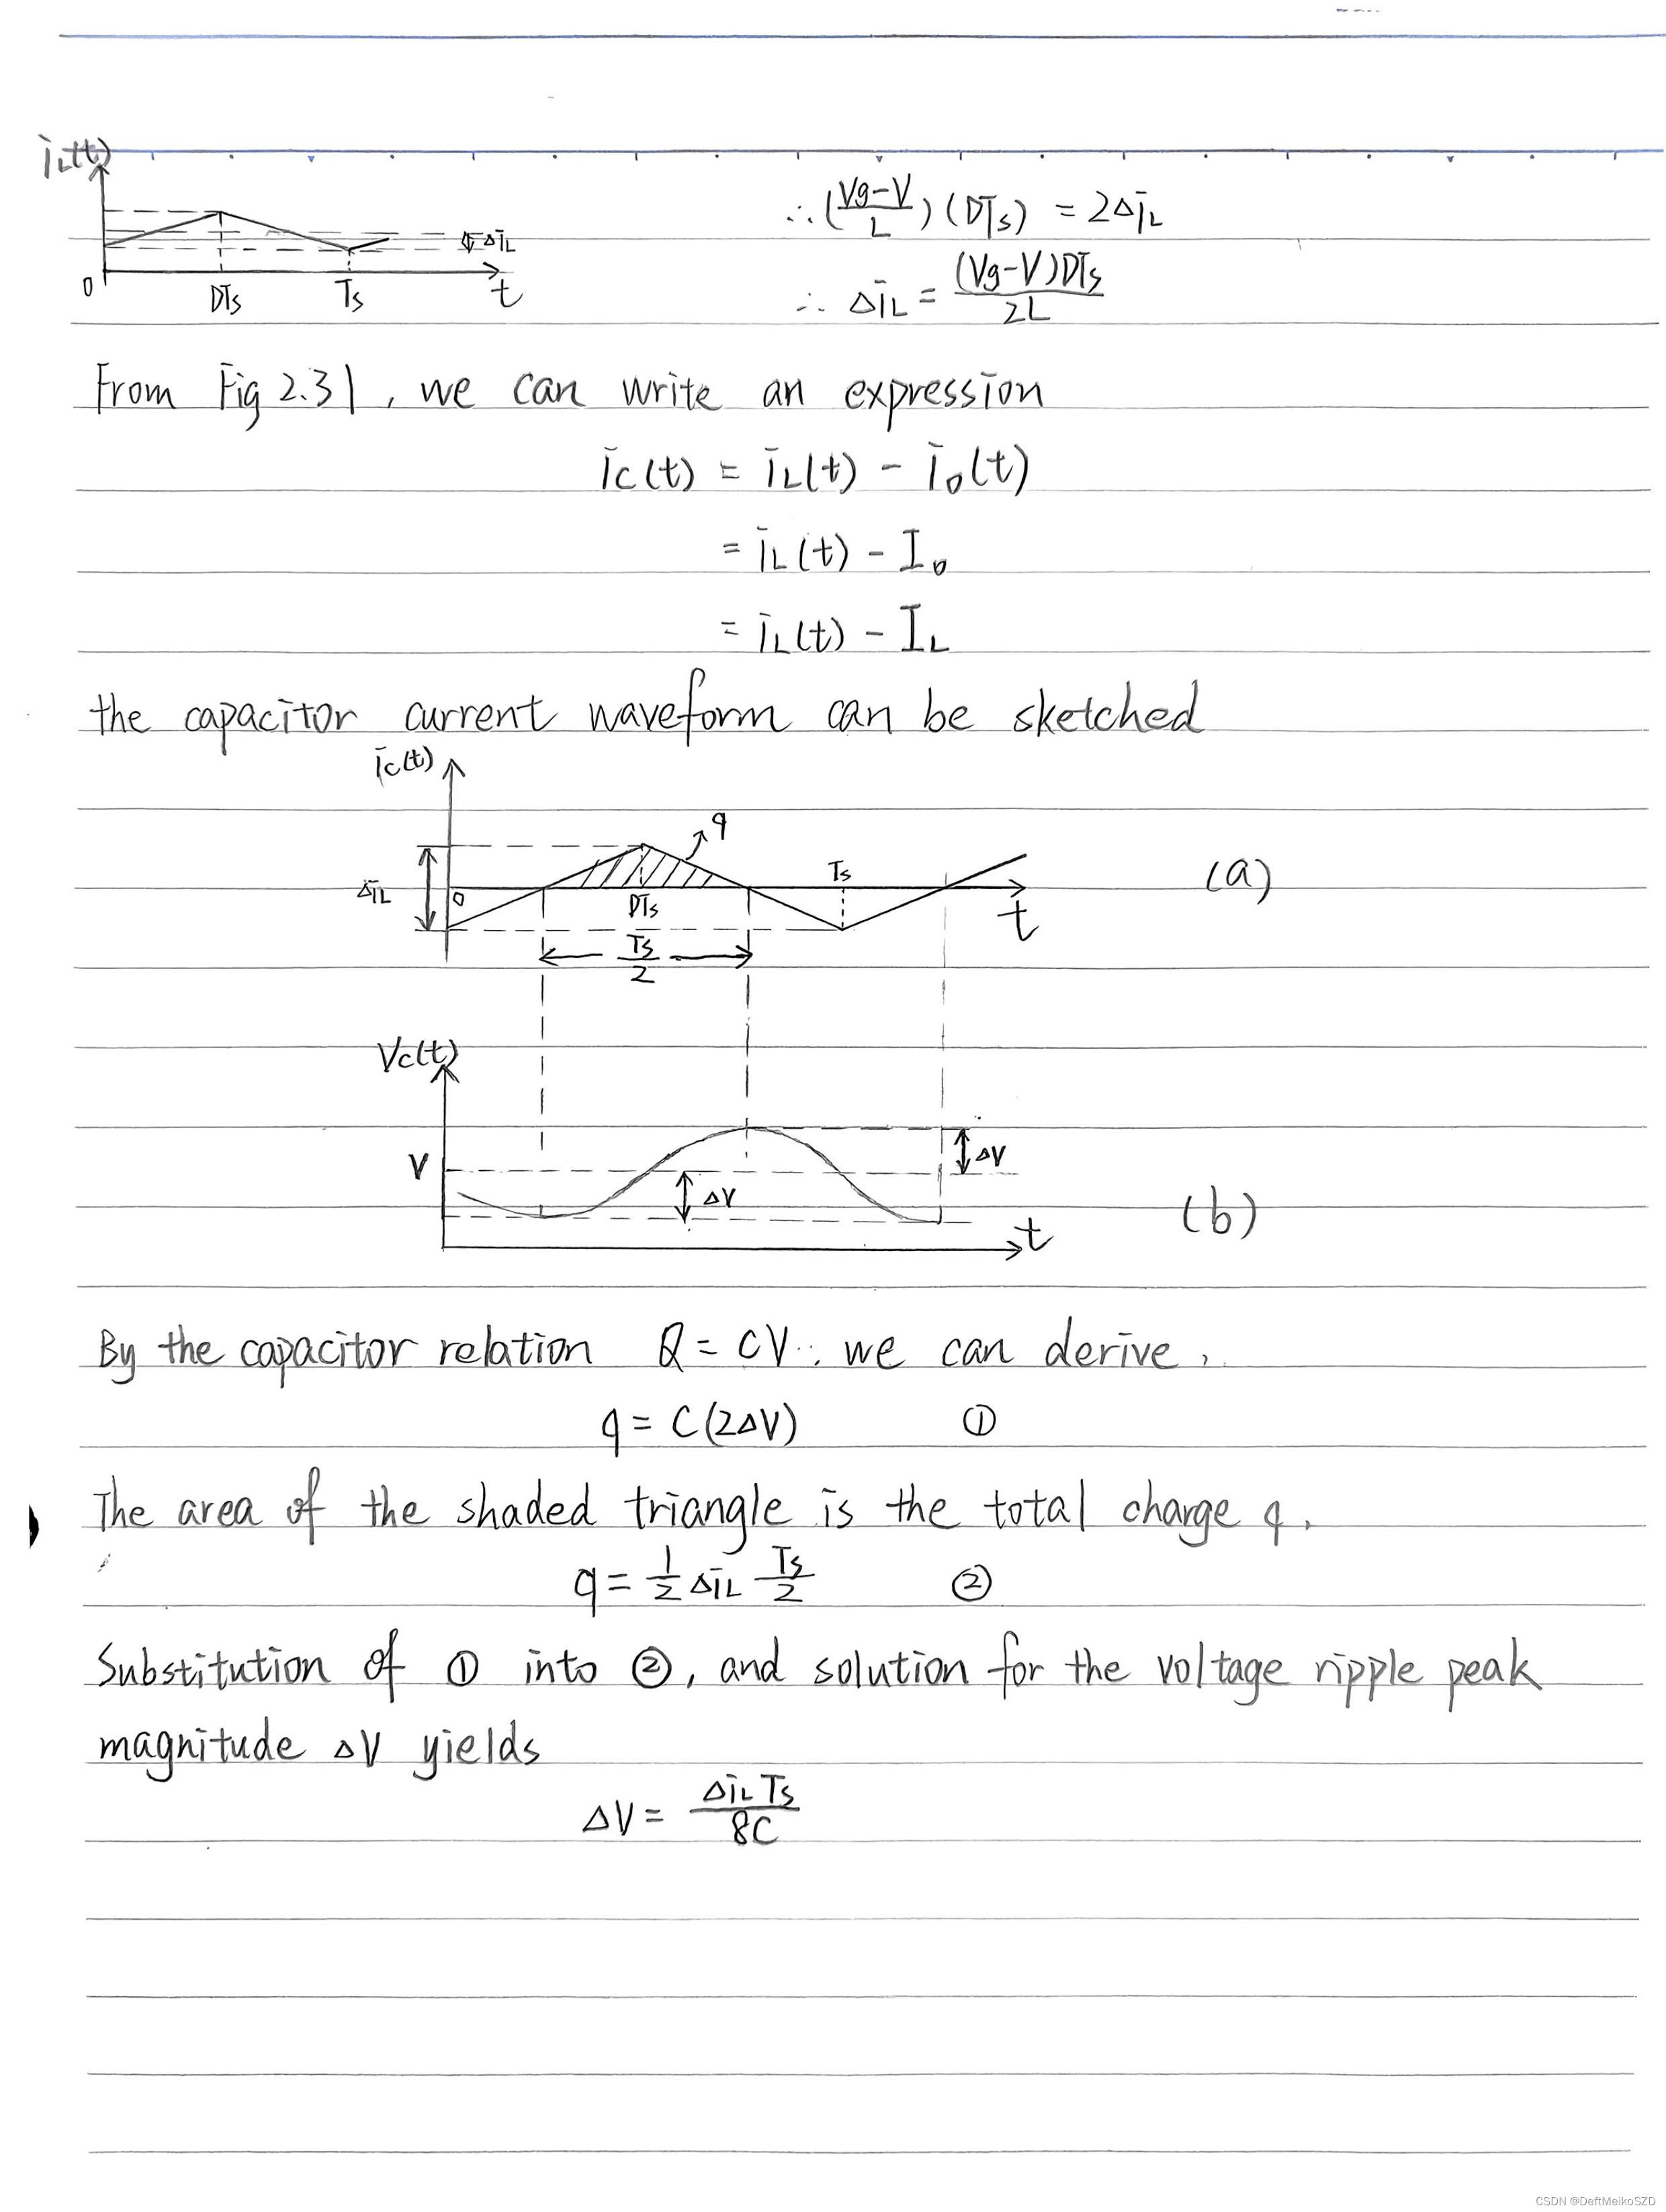 iL(t)
ΔiL
0 DTs Ts t
∴ (Vg-V/L)(DTs) = 2ΔiL
∴ ΔiL = (Vg-V)DTs/2L
From Fig 2.31, we can write an expression
ic(t) = iL(t) - io(t)
= iL(t) - Io
= iL(t) - IL
the capacitor current waveform can be sketched
ic(t)
q
ΔiL 0 DTs Ts t (a)
Ts/2
Vc(t)
V ΔV
ΔV
t (b)
By the capacitor relation Q = CV, we can derive,
q = C(2ΔV) ①
The area of the shaded triangle is the total charge q.
q = 1/2 ΔiL Ts/2 ②
Substitution of ① into ②, and solution for the voltage ripple peak
magnitude ΔV yields
ΔV = ΔiL Ts/8C
CSDN @DeftMeikoSZD